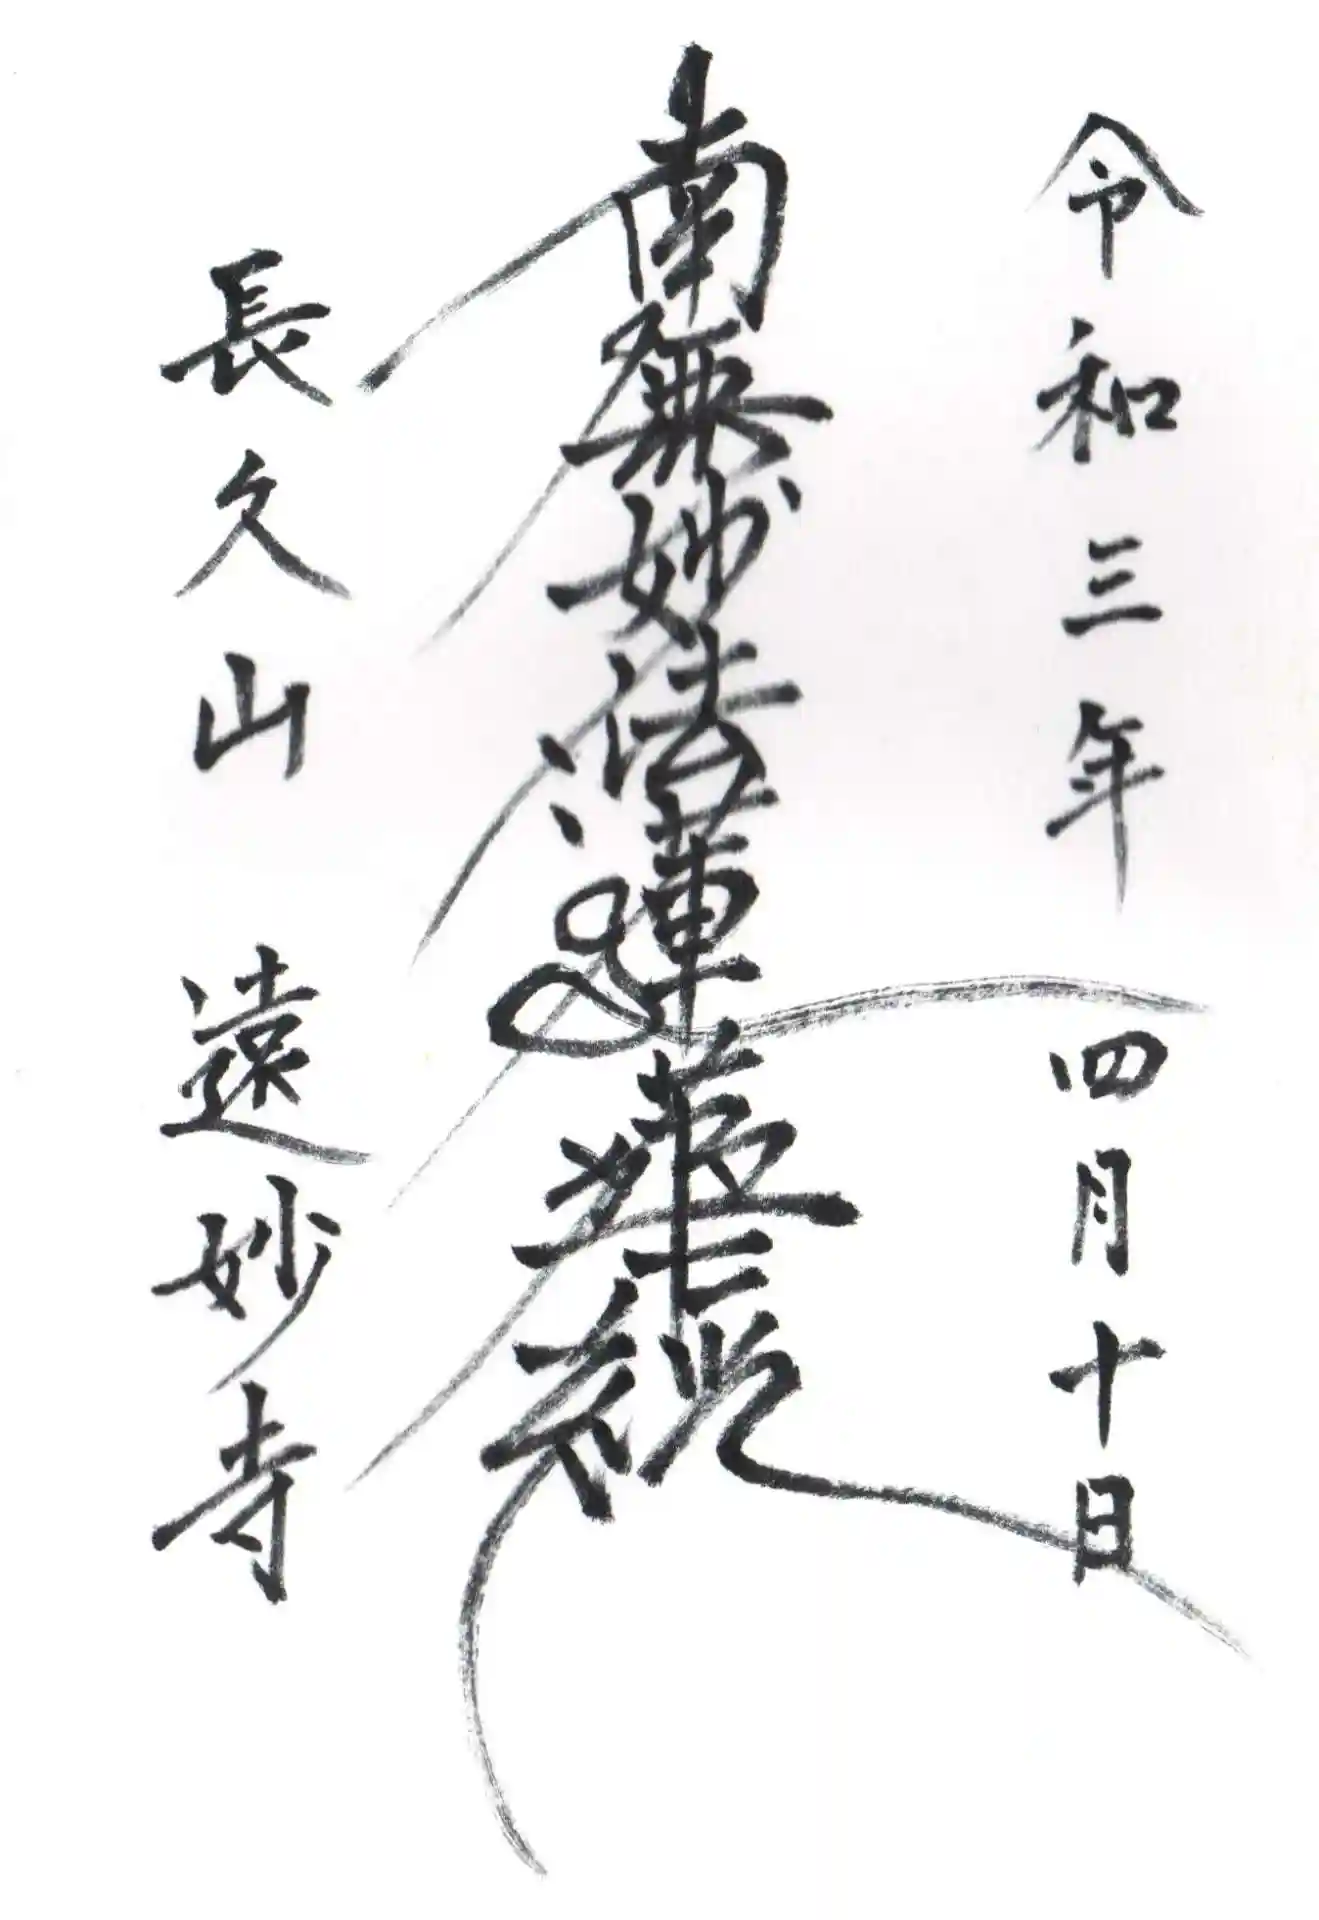 令和三年四月十日
南無妙法蓮華経
長久山 遠妙寺